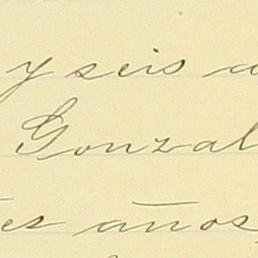 y seis
Gonzal
años,